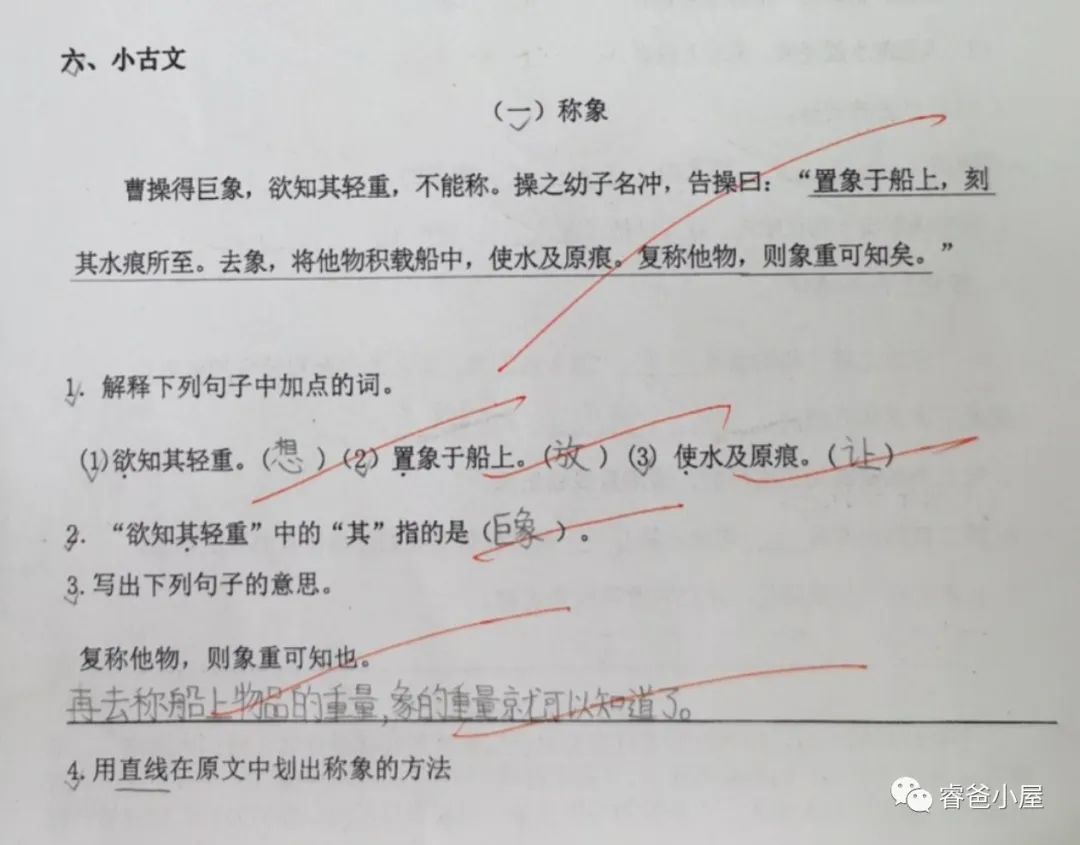 六、小古文
（一）称象
曹操得巨象，欲知其轻重，不能称。操之幼子名冲，告操曰：“置象于船上，刻
其水痕所至。去象，将他物积载船中，使水及原痕。复称他物，则象重可知矣。”
1. 解释下列句子中加点的词。
(1)欲知其轻重。(想）(2）置象于船上。(放）(3）使水及原痕。(让）
2. “欲知其轻重”中的“其”指的是（巨象）。
3. 写出下列句子的意思。
复称他物，则象重可知也。
再去称船上物品的重量,象的重量就可以知道了。
4. 用直线在原文中划出称象的方法
睿爸小屋